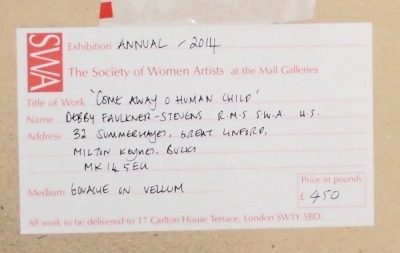 SWA
Exhibition ANNUAL / 2014
The Society of Women Artists at the Mall Galleries
Title of Work "COME AWAY O HUMAN CHILD"
Name DEBBY FAULKNER-STEVENS R.M.S S.W.A H.S.
Address 32 SUMMERHAYES, GREAT LINFORD,
MILTON KEYNES. BUCKS
MK14 5EU
Medium GOUACHE ON VELLUM
Price in pounds
£ 450
All work to be delivered to 17 Carlton House Terrace, London SW1Y 5BD.